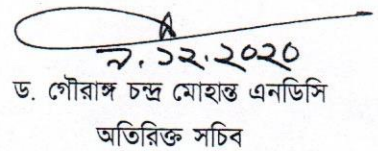 ১.১২.২০২০
ড. গৌরাঙ্গ চন্দ্র মোহান্ত এনডিসি
অতিরিক্ত সচিব